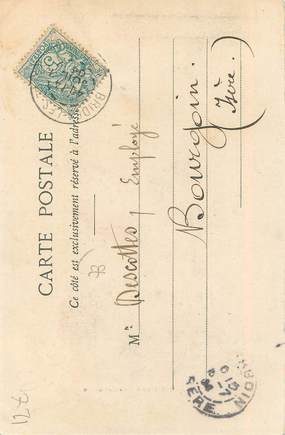 CARTE POSTALE
Ce côté est exclusivement réservé à l'adresse
Mr Descottes, Employé
Bourgoin.
(Isère)
ISÈRE
127